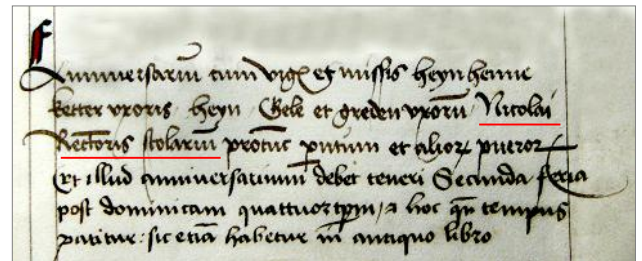 F
Anniuersariū cum vigȷ̄ et missis heyn henne
ketter vxoris heyn Gele et greden vxorū Nicolai
Rectoris scolariū protūc putum et alioꝝ pueroꝝ
Et illud anniuersariūm debet teneri Secunda feria
post dominicam quattuortꝑm, a hoc qn̄ tempus
patitur : sic etiā habetur in antiquo libro